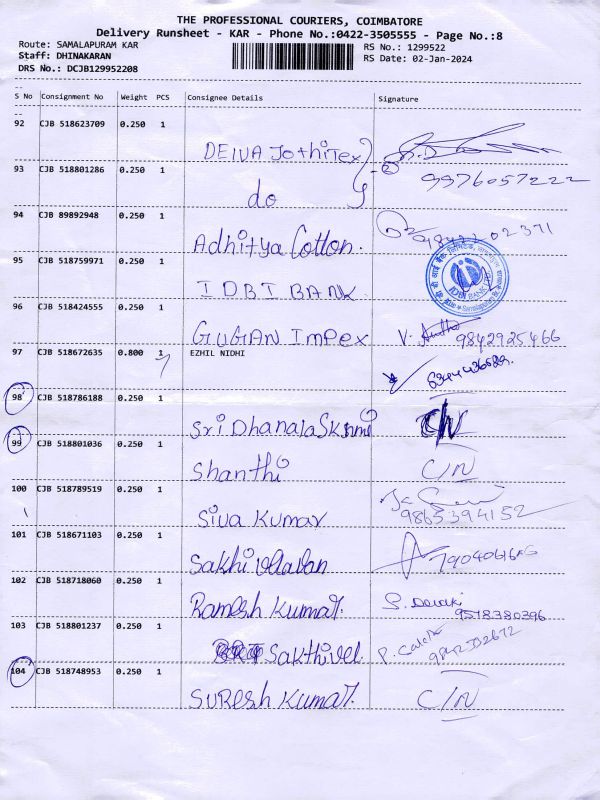 THE PROFESSIONAL COURIERS, COIMBATORE
Delivery Runsheet - KAR - Phone No.:0422-3505555 - Page No.:8
Route: SAMALAPURAM KAR
RS No.: 1299522
Staff: DHINAKARAN
RS Date: 02-Jan-2024
DRS No.: DCJB129952208
S No Consignment No Weight PCS Consignee Details Signature
92 CJB 518623709 0.250 1
DEIVA JothiTex
93 CJB 518801286 0.250 1
do 9976057222
94 CJB 89892948 0.250 1
Adhitya Cotton. 98422 02371
95 CJB 518759971 0.250 1
IDBI BANK
IDBI BANK LTD
96 CJB 518424555 0.250 1
GUGAN Impex V. 9842925466
97 CJB 518672635 0.800 1 EZHIL NIDHI
98 CJB 518786188 0.250 1
Sri DhanalaSkhmi C/N
99 CJB 518801036 0.250 1
Shanthi C/N
100 CJB 518789519 0.250 1
Siva Kumar 9865394152
101 CJB 518671103 0.250 1
Sakhi
102 CJB 518718060 0.250 1
Ramesh Kumar. S. Devaki
9578380396
103 CJB 518801237 0.250 1
Sakthivel P.
104 CJB 518748953 0.250 1
Suresh Kumar. C/N